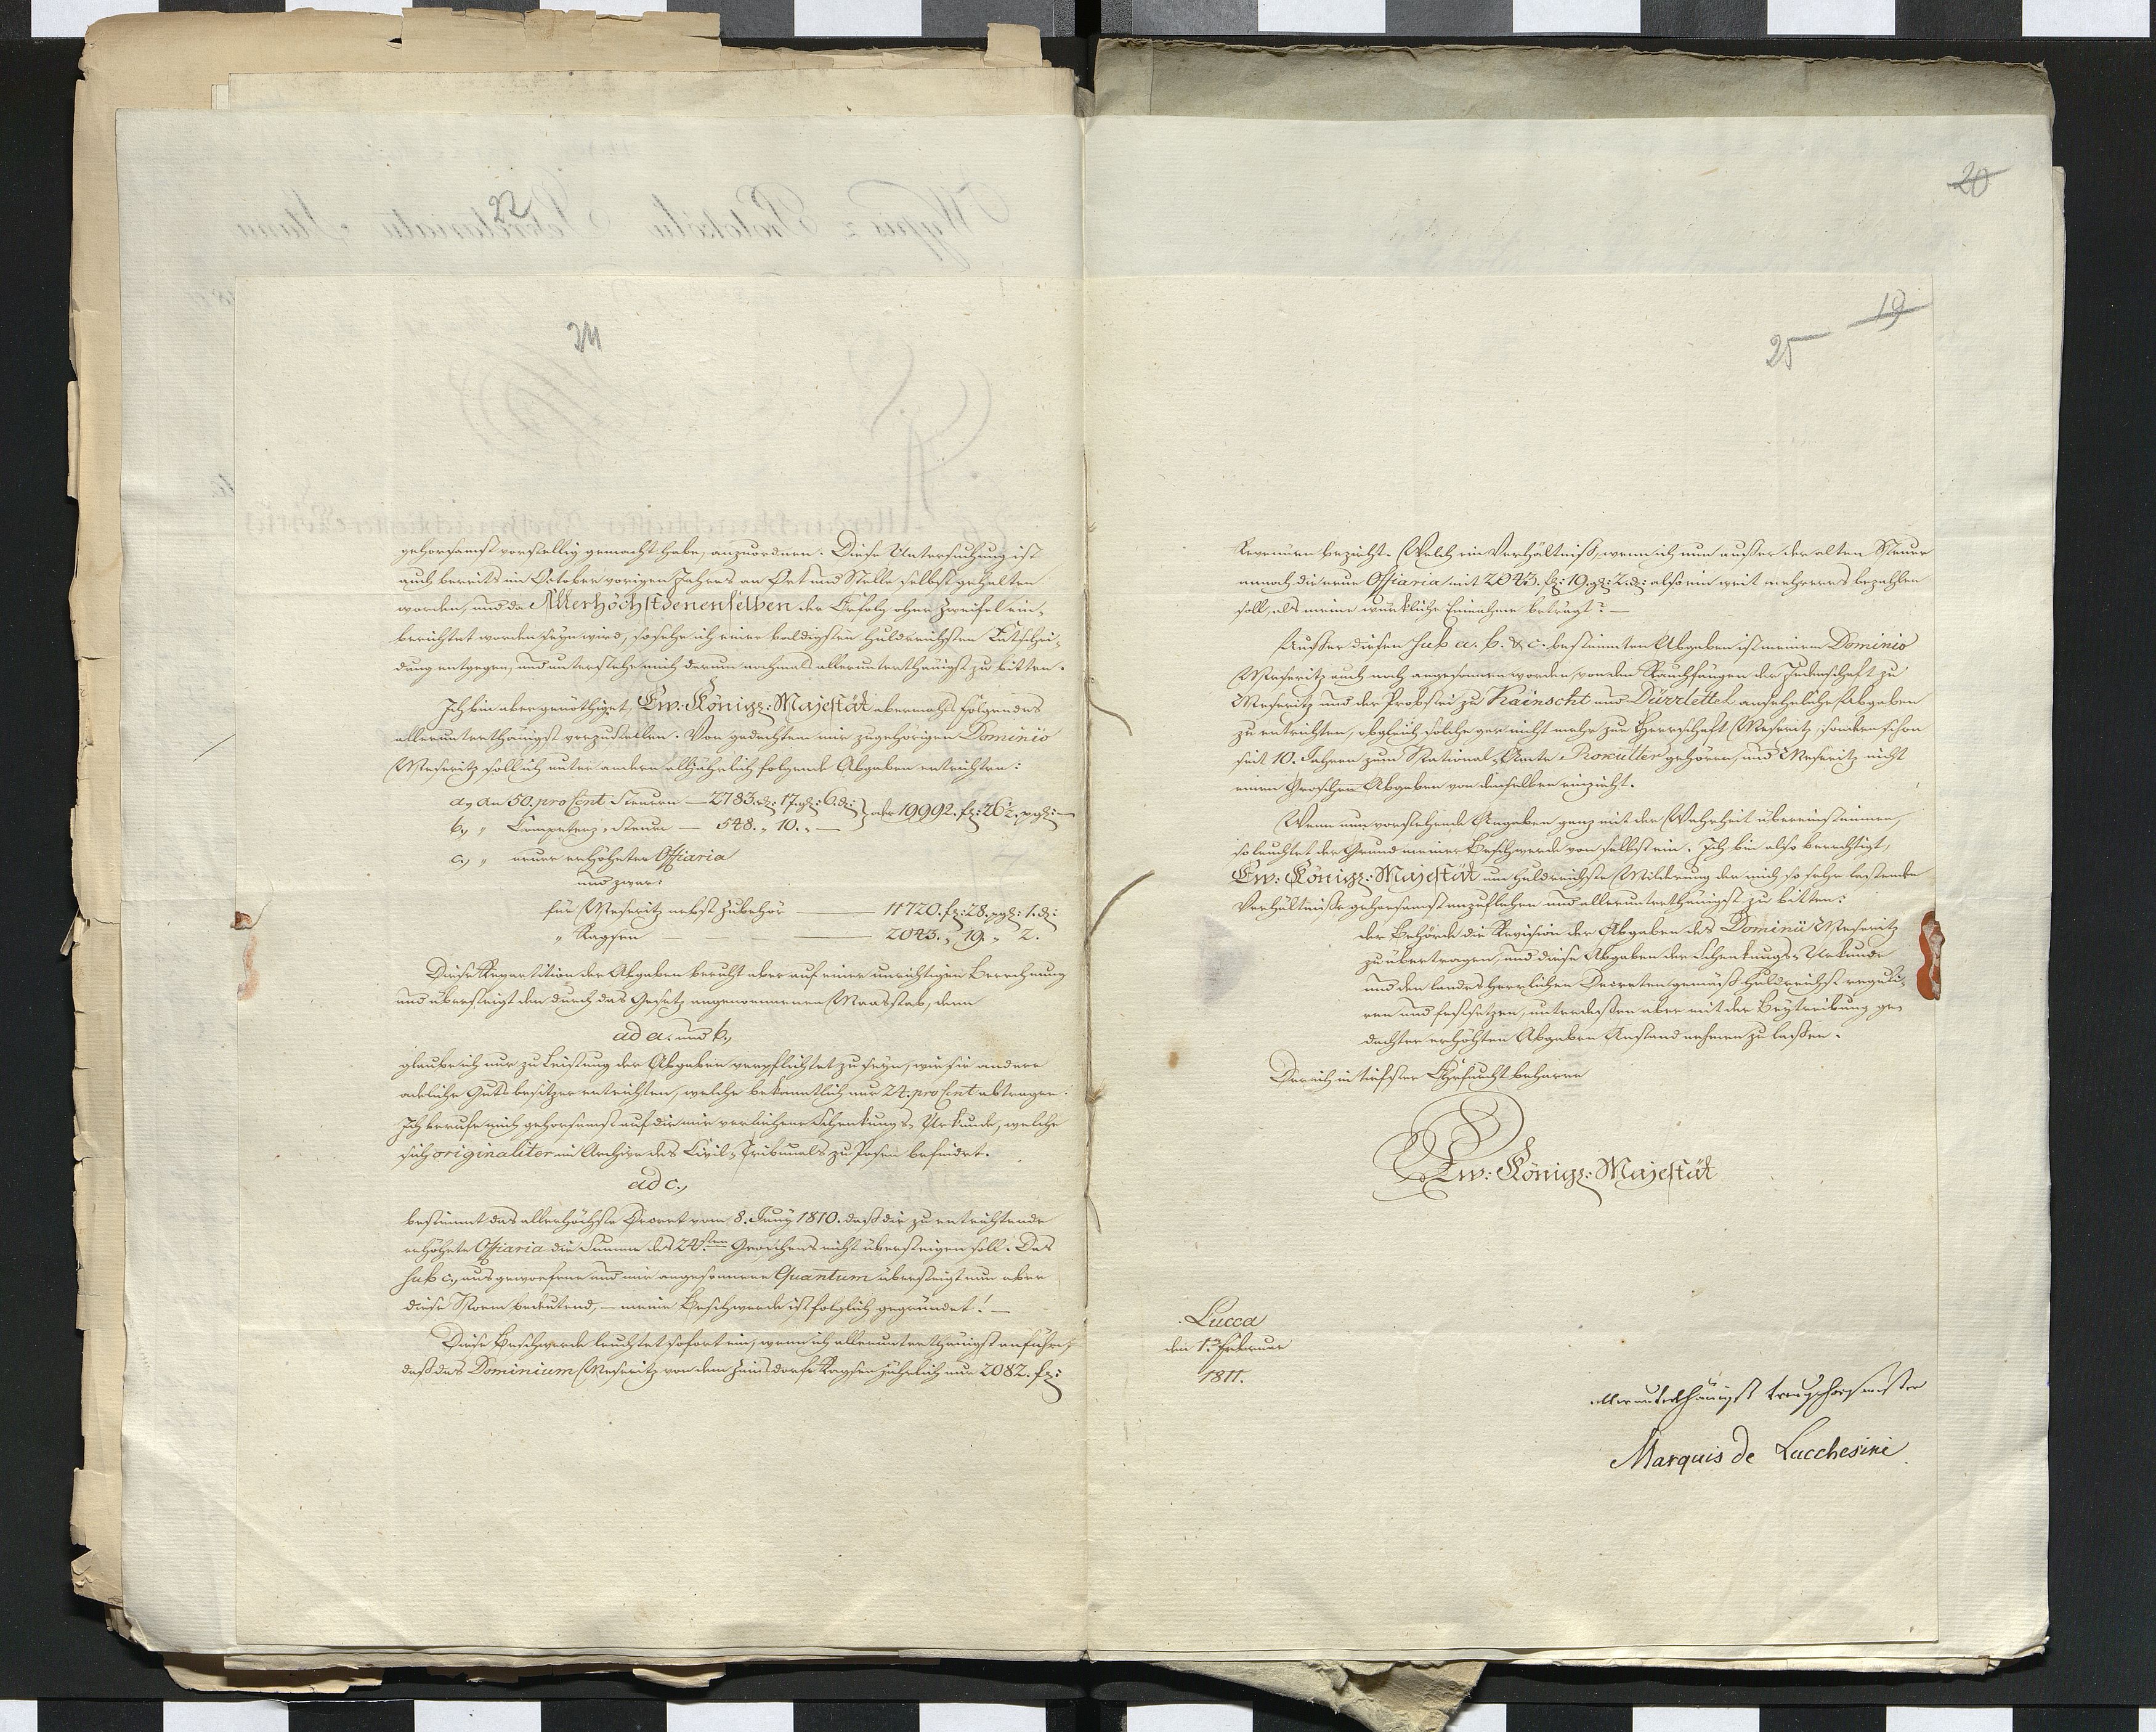 22
24
gehorsamst vorstellig gemacht habe, anzuordnen. Diese Untersuchung ist
auch bereits im October vorigen Jahres an Ort und Stelle selbst gehalten
worden, und da Allerhöchstdenenselben der Erfolg ohne Zweifel ein-
berichtet worden seyn wird, so sehe ich einer baldigsten huldreichsten Entschei-
dung entgegen, und unterstehe mich darum nochmals allerunterthänigst zu bitten.
Ich bin aber genöthiget, Ew. Königl: Majestät abermahls folgendes
allerunterthänigst vorzustellen. Von gedachtem mir zugehörigen Dominio
Meseritz soll ich unter andern alljährlich folgende Abgaben entrichten:
a, An 50. pro Cent Steuern — 2783. rh: 17. gl: 6. d: } oder 19992. fl: 26½. pgl: —
b, " Competenz-Steuer — 548. " 10. " —
c, " neuer erhöhter Offiaria
und zwar:
für Meseritz nebst Zubehör — 11720. fl: 28. pgl: 1. d:
" Kagsen — 2043. " 19. " 2.
Diese Repartition der Abgaben beruht aber auf einer unrichtigen Berechnung
und übersteigt den durch das Gesetz angenommenen Maasstab, denn
ad a. und b.,
glaube ich nur zu Leistung der Abgaben verpflichtet zu seyn, wie sie andere
adeliche Gutsbesitzer entrichten, welche bekanntlich nur 24. pro Cent abtragen.
Ich berufe mich gehorsamst auf die mir verliehene Schenkungs-Urkunde, welche
sich originaliter im Archive des Civil-Tribunals zu Posen befindet.
ad c.,
bestimmt das allerhöchste Decret vom 8. Juny 1810. daß die zu entrichtende
erhöhete Offiaria die Summe des 24sten Groschens nicht übersteigen soll. Das
sub c., ausgeworfene und mir angesonnene Quantum übersteigt nun aber
diese Norm bedeutend, — meine Beschwerde ist folglich gegründet! —
Diese Beschwerde leuchtet sofort ein, wenn ich allerunterthänigst anführe,
daß das Dominium Meseritz von dem Zinsdorfe Kagsen jährlich nur 2082. fl:
20
19
25
Revenüen bezieht. Welch ein Verhältniß, wenn ich nun außer der alten Steuer
annoch die neue Offiaria mit 2043. fl: 19. gl: 2. d: also ein weit mehreres bezahlen
soll, als meine würkliche Einnahme beträgt? —
Außer diesen sub a. b. & c. bestimmten Abgaben ist meinem Dominio
Meseritz auch noch angesonnen worden, von den Rauchfängen der Judenschaft zu
Meseritz und der Probstei zu Kainscht und Dürrlettel ansehnliche Abgaben
zu entrichten, obgleich solche gar nicht mehr zur Herrschaft Meseritz, sondern schon
seit 10. Jahren zum National-Amte Rokitten gehören, und Meseritz nicht
einen Groschen Abgaben von denselben einzieht.
Wenn nun vorstehende Angaben ganz mit der Wahrheit übereinstimmen,
so leuchtet der Grund meiner Beschwerde von selbst ein. Ich bin also berechtigt,
Ew: Königl: Majestät um huldreichste Milderung der mich so sehr lastenden
Verhältnisse gehorsamst anzuflehen und allerunterthänigst zu bitten:
der Behörde die Revision der Abgaben des Dominii Meseritz
zu übertragen, und diese Abgaben der Schenkungs-Urkunde
und den landesherrlichen Decreten gemäß huldreichst reguli-
ren und festsetzen, unterdessen aber mit der Beytreibung ge-
dachter erhöhten Abgaben Anstand nehmen zu lassen.
Der ich in tiefster Ehrfurcht beharre
Ew: Königl: Majestät
Lucca
den 1n Februar
1811.
allerunterthänigst treugehorsamster
Marquis de Lucchesini.